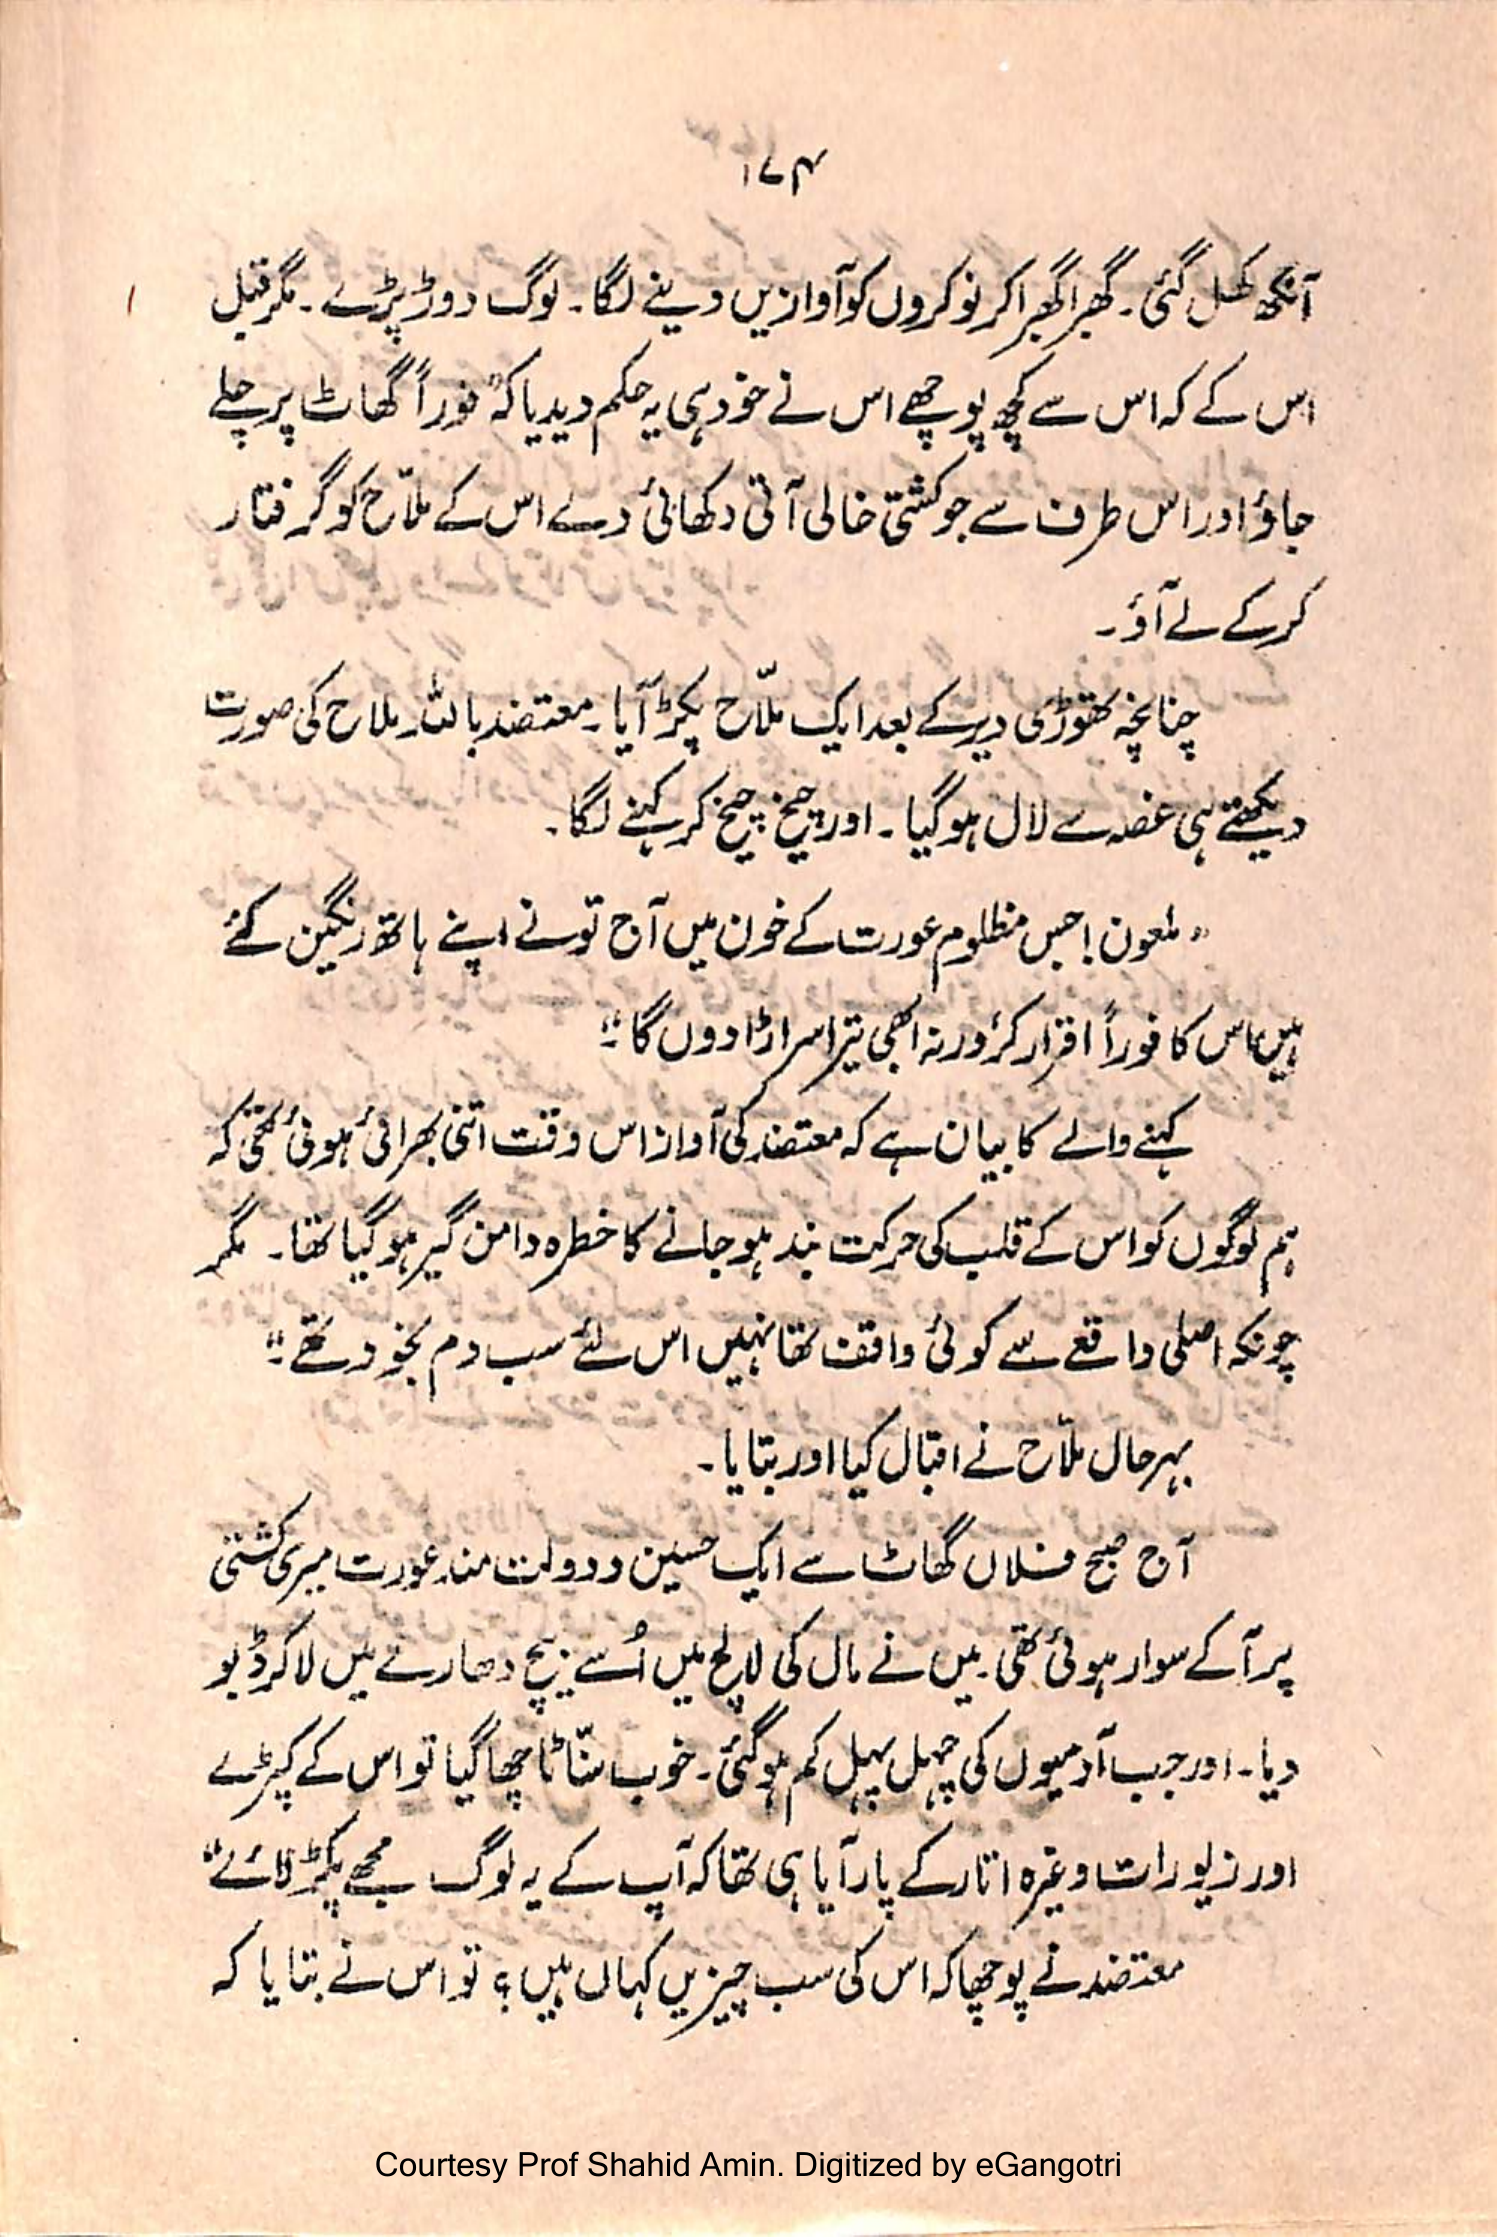 ۱۷۴
آنکھ کھل گئی۔ گھبرا گھبرا کر نوکروں کو آوازیں دینے لگا۔ لوگ دوڑ پڑے۔ مگر قبل
اس کے کہ اس سے کچھ پوچھے اس نے خود ہی یہ حکم دیدیا کہ "فوراً گھاٹ پر چلے
جاؤ اور اس طرف سے جو کشتی خالی آتی دکھائی دے اس کے ملّاح کو گرفتار
کرکے لے آؤ۔
چنانچہ تھوڑی دیر کے بعد ایک ملّاح پکڑ آیا۔ معتضد باللہ ملاح کی صورت
دیکھتے ہی غصہ سے لال ہوگیا۔ اور چیخ چیخ کر کہنے لگا۔
"ملعون! جس مظلوم عورت کے خون میں آج تونے اپنے ہاتھ رنگین کئے
ہیں اس کا فوراً اقرار کر، ورنہ ابھی تیرا سر اڑا دوں گا"۔
کہنے والے کا بیان ہے کہ معتضد کی آواز اس وقت اتنی بھرائی ہوئی تھی کہ
ہم لوگوں کو اس کے قلب کی حرکت بند ہو جانے کا خطرہ دامن گیر ہو گیا تھا۔ مگر
چونکہ اصلی واقعے سے کوئی واقف تھا نہیں اس لئے سب دم بخود تھے"۔
بہر حال ملّاح نے اقبال کیا اور بتایا۔
آج صبح فلاں گھاٹ سے ایک حسین و دولت مند عورت میری کشتی
پر آکے سوار ہوئی تھی۔ میں نے مال کی لالچ میں اُسے بیچ دھارے میں لاکر ڈُبو
دیا۔ اور جب آدمیوں کی چہل پہل کم ہو گئی۔ خوب سنّاٹا چھا گیا تو اس کے کپڑے
اور زیورات وغیرہ اتار کے پار آیا ہی تھا کہ آپ کے یہ لوگ مجھے پکڑ لائے"
معتضد نے پوچھا کہ اس کی سب چیزیں کہاں ہیں؟ تو اس نے بتایا کہ
Courtesy Prof Shahid Amin. Digitized by eGangotri